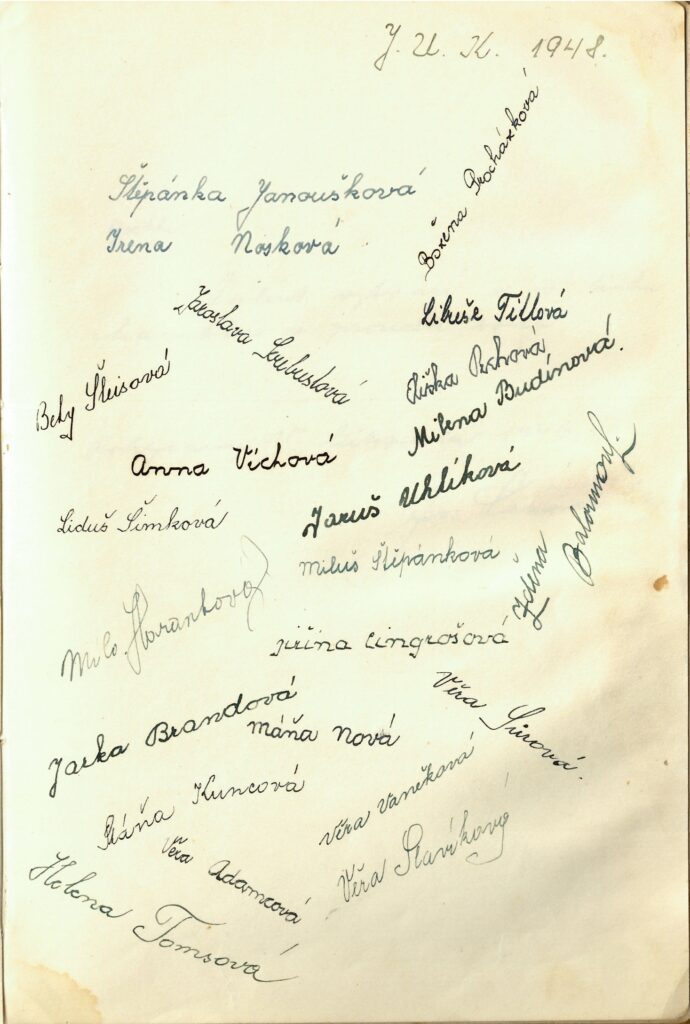 J. U. K. 1948.
Božena Procházková
Štěpánka Janoušková
Irena Nosková
Jaroslava
Libuše Tillová
Liška Pechová
Milena Budínová.
Beky Šleisová
Anna Víchová
Liduš Šimková
Jaruš Uhlíková
Miluš Štěpánková
Zdena
Milo
Jiřina Cingrošová
Jarka Brandová
Máňa Nová
Věra
Máňa Kuncová
Věra Vaněková
Věra Adamcová
Věra Slavíková
Helena Tomsová